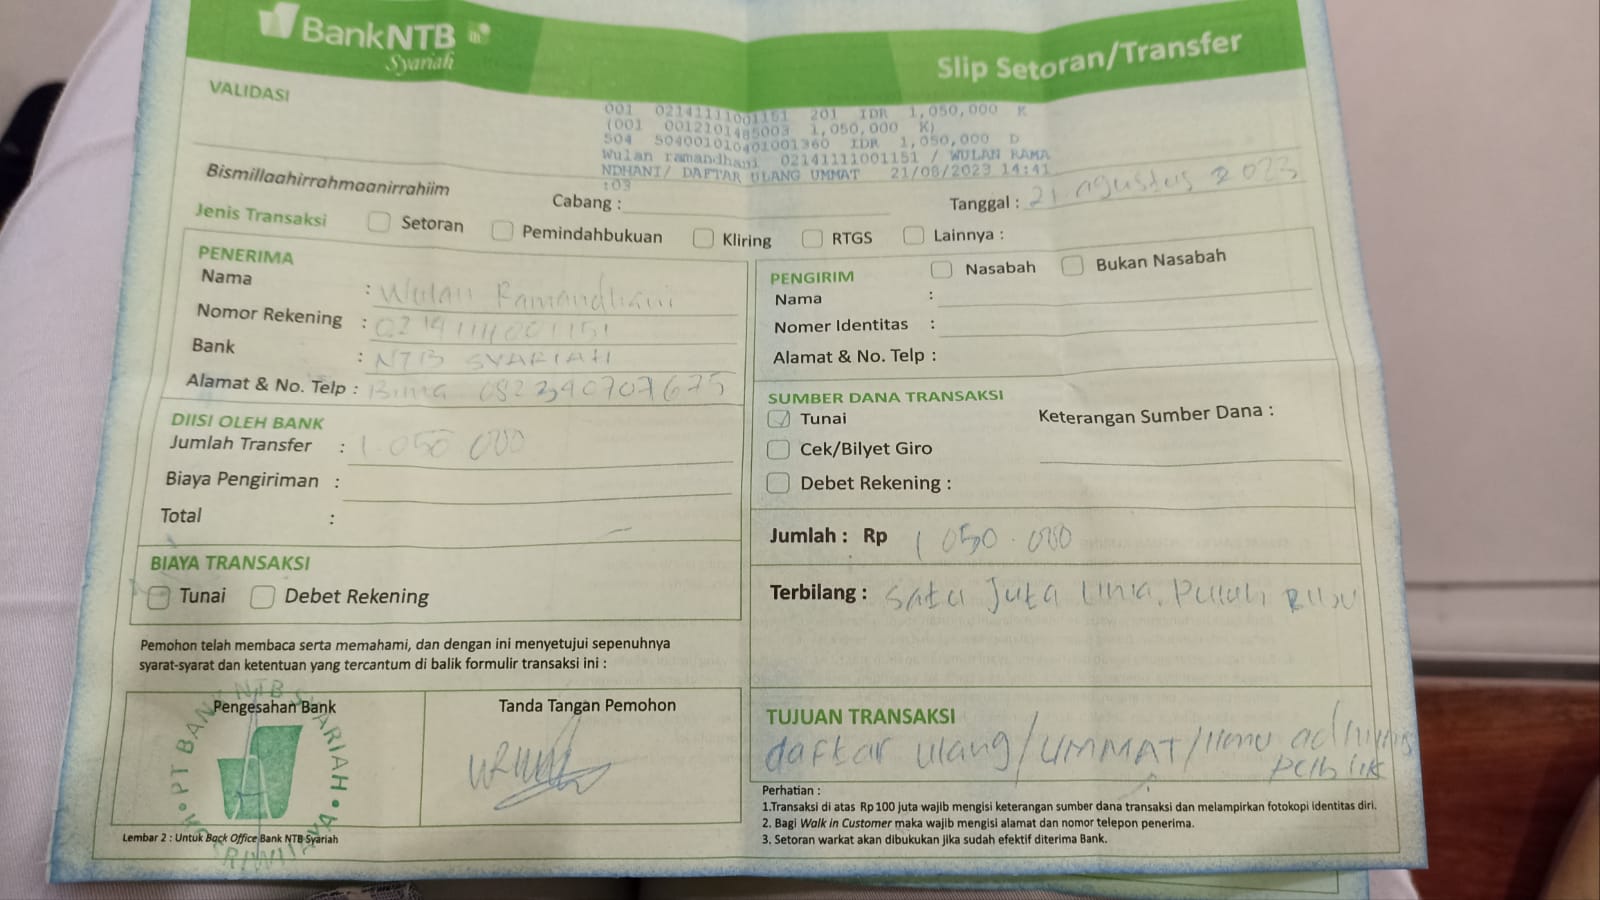 BankNTB
Syariah
Slip Setoran/Transfer
VALIDASI
001 02141111001151 201 IDR 1,050,000 K
(001 0012101485003 1,050,000 K)
504 504001010401001360 IDR 1,050,000 D
Wulan ramandhani 02141111001151 / WULAN RAMA
NDHANI/ DAFTAR ULANG UMMAT 21/08/2023 14:41
:03
Bismillaahirrahmaanirrahiim
Cabang :
Tanggal : 21 agustus 2023
Jenis Transaksi Setoran Pemindahbukuan Kliring RTGS Lainnya :
PENERIMA
Nama : Wulan Ramandhani
Nomor Rekening : 02141111001151
Bank : NTB SYARIAH
Alamat & No. Telp : Bima 082340707675
DIISI OLEH BANK
Jumlah Transfer : 1.050 000
Biaya Pengiriman :
Total :
BIAYA TRANSAKSI
Tunai Debet Rekening
Pemohon telah membaca serta memahami, dan dengan ini menyetujui sepenuhnya
syarat-syarat dan ketentuan yang tercantum di balik formulir transaksi ini :
Pengesahan Bank
PT BANK NTB SYARIAH
SRIWIJAYA
Tanda Tangan Pemohon
Lembar 2 : Untuk Back Office Bank NTB Syariah
PENGIRIM Nasabah Bukan Nasabah
Nama :
Nomer Identitas :
Alamat & No. Telp :
SUMBER DANA TRANSAKSI
Tunai Keterangan Sumber Dana :
Cek/Bilyet Giro
Debet Rekening :
Jumlah : Rp 1 050.000
Terbilang : Satu Juta Lima Puluh Ribu
TUJUAN TRANSAKSI
daftar ulang/UMMAT/ilmu adminis
Publik
Perhatian :
1.Transaksi di atas Rp 100 juta wajib mengisi keterangan sumber dana transaksi dan melampirkan fotokopi identitas diri.
2. Bagi Walk in Customer maka wajib mengisi alamat dan nomor telepon penerima.
3. Setoran warkat akan dibukukan jika sudah efektif diterima Bank.